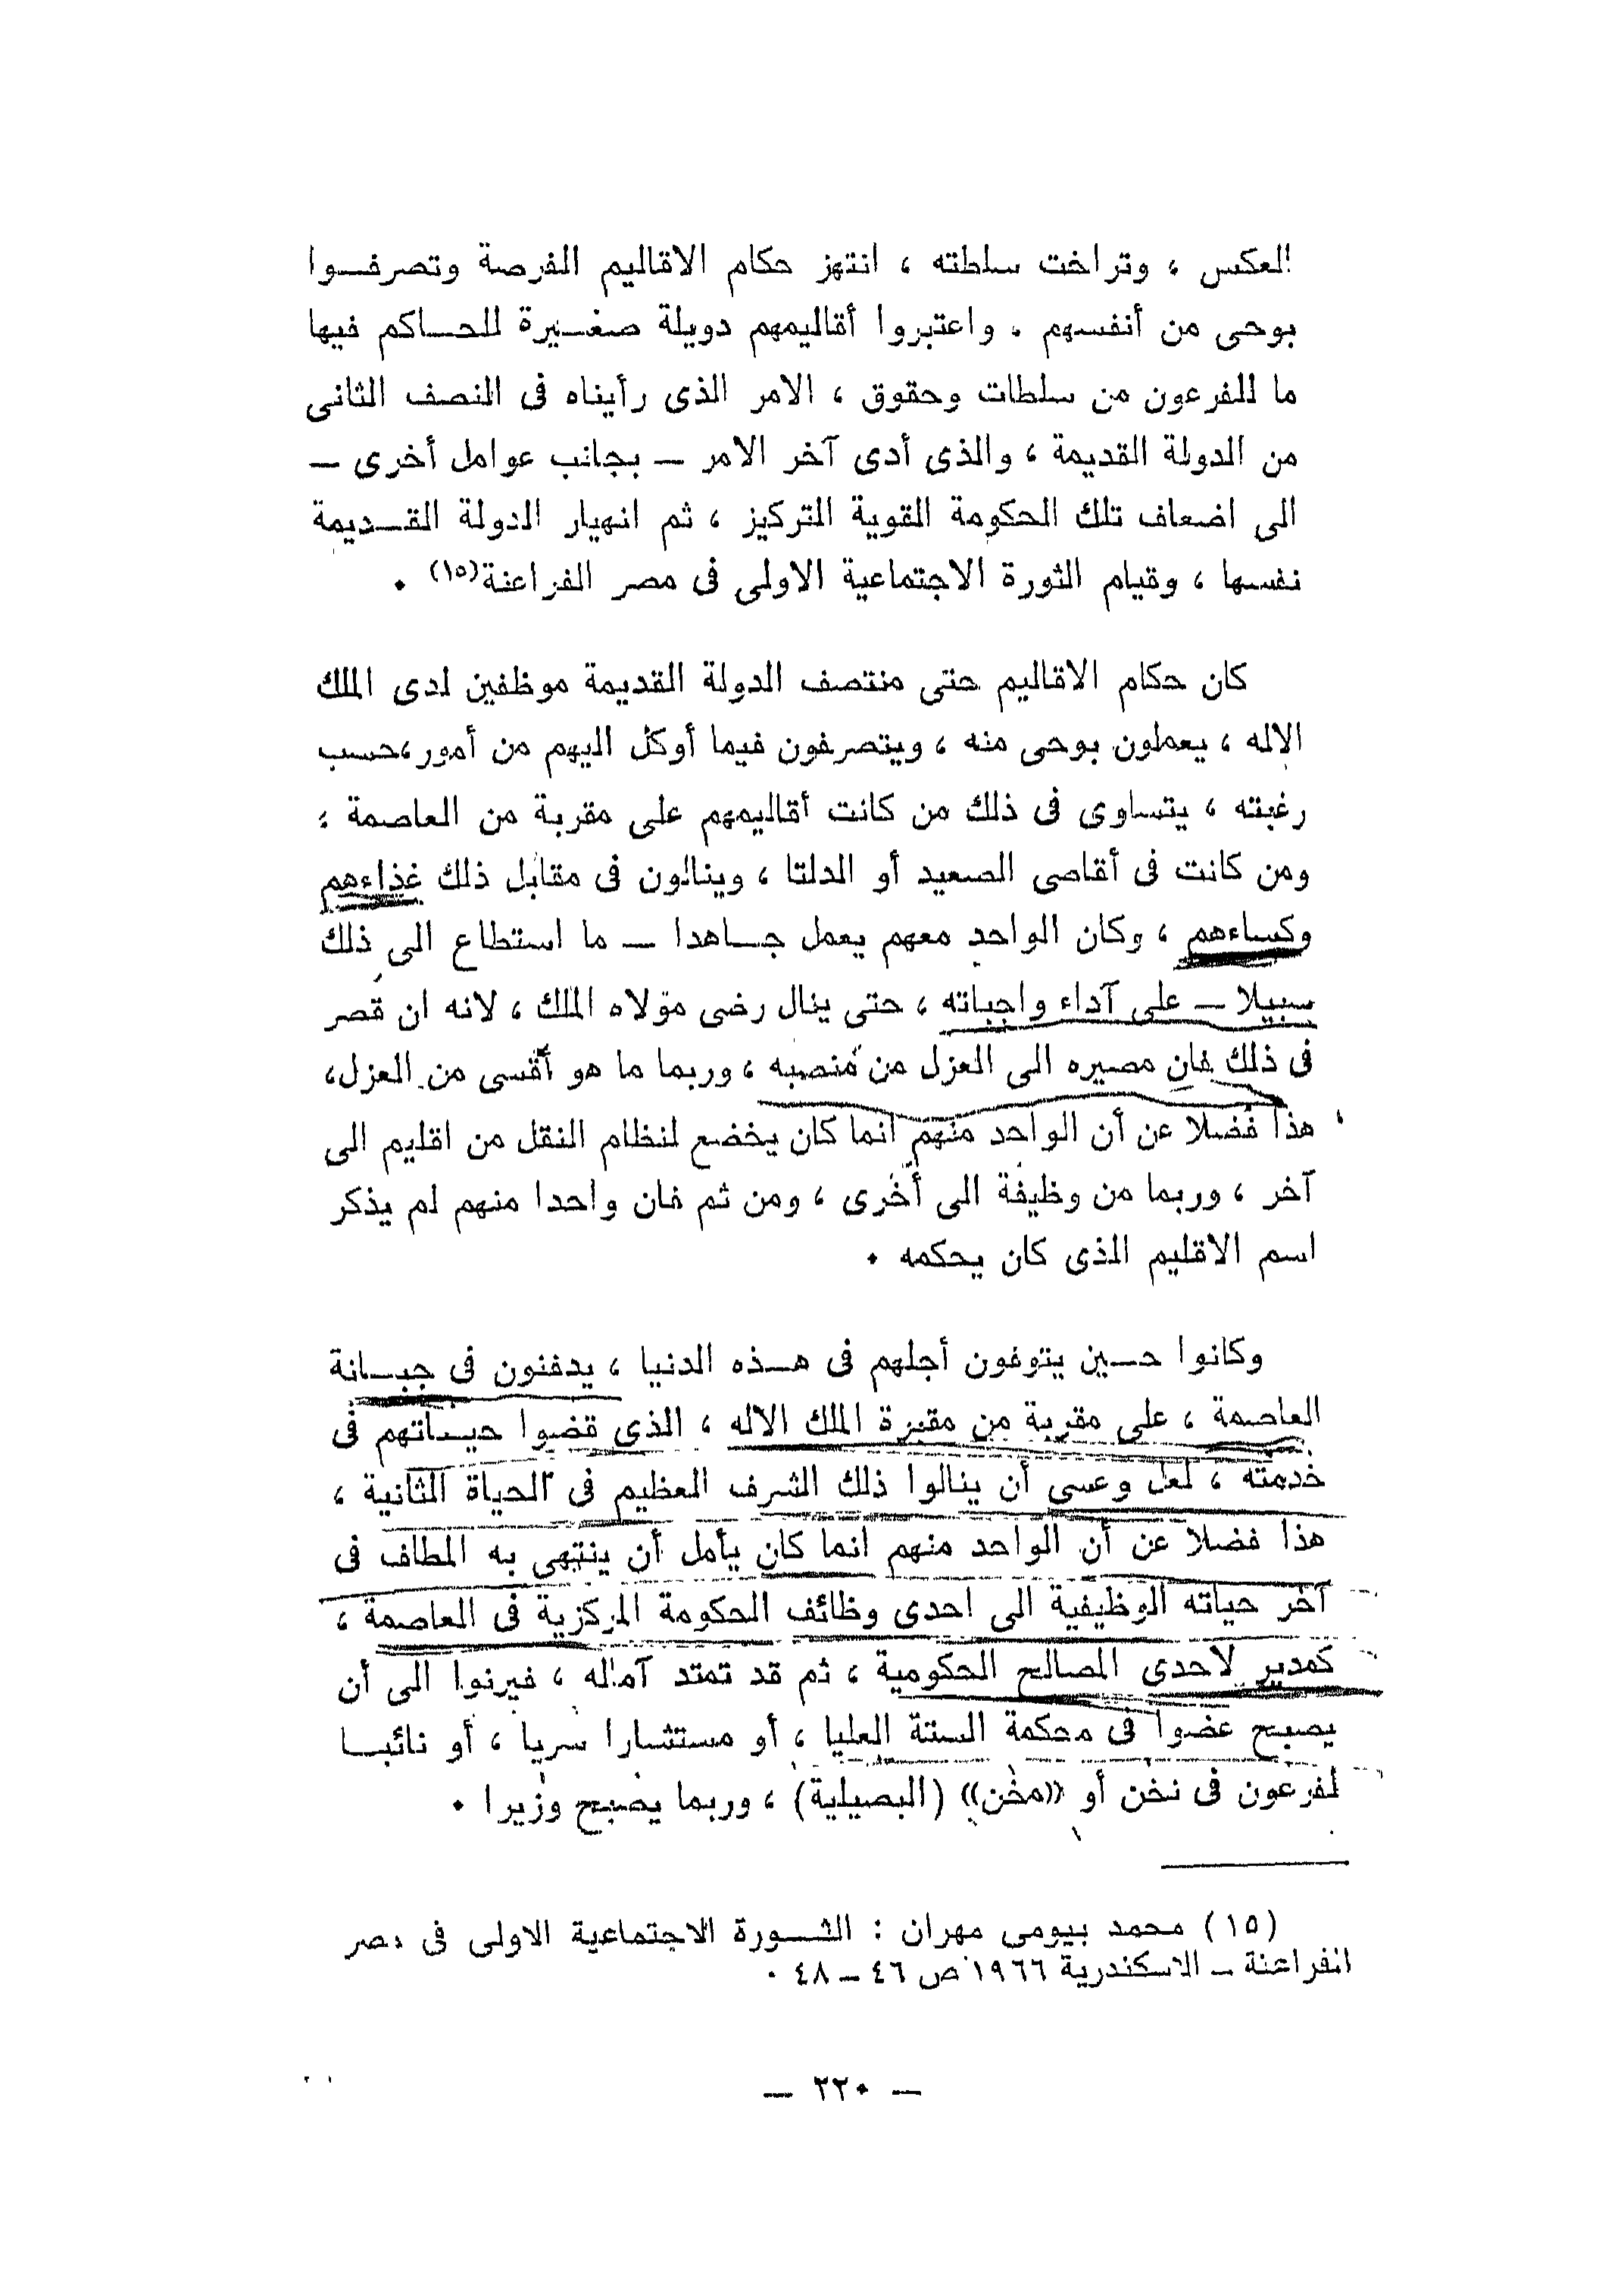 العكس ، وتراخت سلطته ، انتهز حكام الاقاليم الفرصة وتصرفـــوا
بوحى من أنفسهم ، واعتبروا أقاليمهم دويلة صغــيرة للحــاكم فيها
ما للفرعون من سلطات وحقوق ، الامر الذى رأيناه فى النصف الثانى
من الدولة القديمة ، والذى أدى آخر الامر ــ بجانب عوامل أخرى ــ
الى اضعاف تلك الحكومة القوية التركيز ، ثم انهيار الدولة القــديمة
نفسها ، وقيام الثورة الاجتماعية الاولى فى مصر الفراعنة(١٥) ٠
كان حكام الاقاليم حتى منتصف الدولة القديمة موظفين لدى الملك
الاله ، يعملون بوحى منه ، ويتصرفون فيما أوكل اليهم من أمور،حسب
رغبته ، يتساوى فى ذلك من كانت أقاليمهم على مقربة من العاصمة ،
ومن كانت فى أقاصى الصعيد أو الدلتا ، وينالون فى مقابل ذلك غذاءهم
وكساءهم ، وكان الواحد معهم يعمل جــاهدا ــ ما استطاع الى ذلك
سبيلا ــ على آداء واجباته ، حتى ينال رضى مؤلاه الملك ، لانه ان قصر
فى ذلك فان مصيره الى العزل من منصبه ، وربما ما هو أقسى من العزل،
هذا فضلا عن أن الواحد منهم انما كان يخضع لنظام النقل من اقليم الى
آخر ، وربما من وظيفة الى أخرى ، ومن ثم فان واحدا منهم لم يذكر
اسم الاقليم الذى كان يحكمه ٠
وكانوا حــين يتوفون أجلهم فى هــذه الدنيا ، يدفنون فى جبــانة
العاصمة ، على مقربة من مقبرة الملك الاله ، الذى قضوا حيــاتهم فى
خدمته ، لعل وعسى أن ينالوا ذلك الشرف العظيم فى الحياة الثانية ،
هذا فضلا عن أن الواحد منهم انما كان يأمل أن ينتهى به المطاف فى
آخر حياته الوظيفية الى احدى وظائف الحكومة المركزية فى العاصمة ،
كمدير لاحدى المصالح الحكومية ، ثم قد تمتد آماله ، فيرنوا الى أن
يصبح عضوا فى محكمة الستة العليا ، أو مستشارا سريا ، أو نائبــا
لفرعون فى نخن أو «مخن» (البصيلية) ، وربما يصبح وزيرا ٠
(١٥) محمد بيومى مهران : الثــورة الاجتماعية الاولى فى مصر
الفراعنة ــ الاسكندرية ١٩٦٦ ص ٤٦ ــ ٤٨ ٠
ــ ٢٢٠ ــ